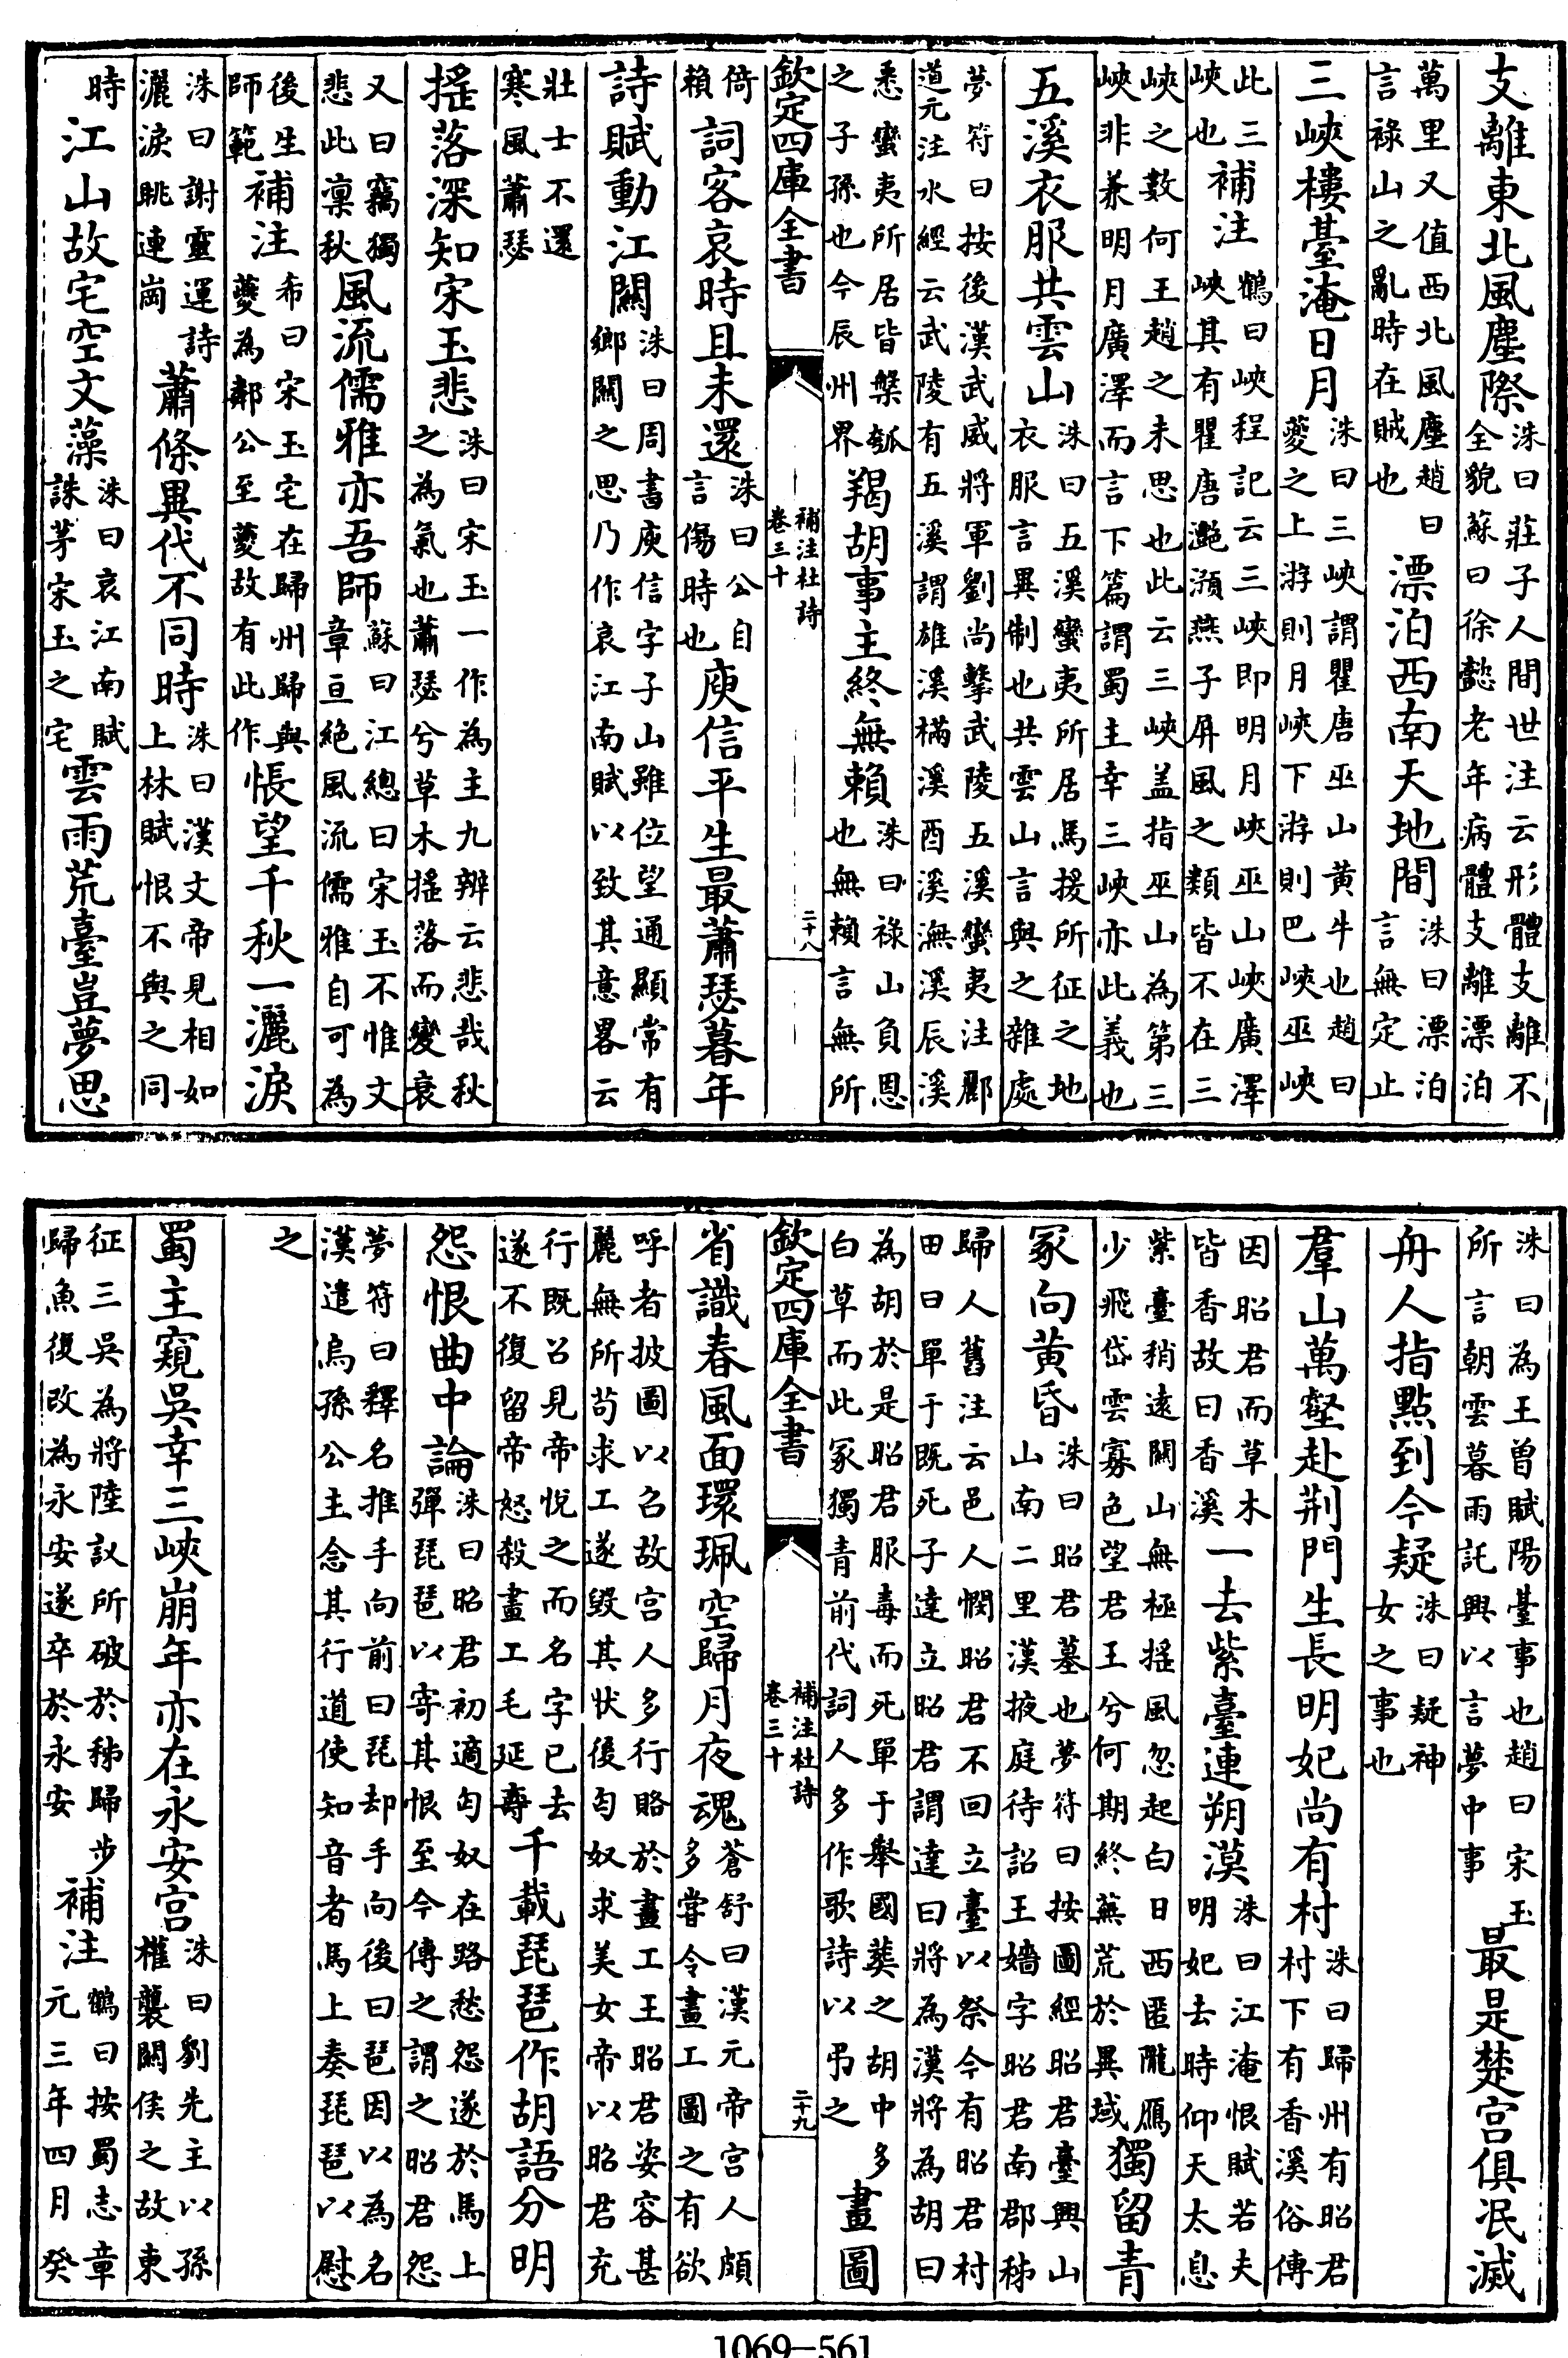 支離東北風塵際洙曰莊子人間世注云形體支離不全貌蘇曰徐懿老年病體支離漂泊
萬里又值西北風塵趙曰言祿山之亂時在賊也漂泊西南天地間洙曰漂泊言無定止
三峽樓臺淹日月洙曰三峽謂瞿唐巫山黃牛也趙曰夔之上游則月峽下游則巴峽巫峽
此三峽也補注鶴曰峽程記云三峽即明月峽巫山峽廣澤峽其有瞿唐灧澦燕子屏風之類皆不在三
峽之數何王趙之未思也此云三峽盖指巫山為第三峽非兼明月廣澤而言下篇謂蜀主幸三峽亦此義也
五溪衣服共雲山洙曰五溪蠻夷所居馬援所征之地衣服言異制也共雲山言與之雜處
夢符曰按後漢武威將軍劉尚擊武陵五溪蠻夷注酈道元注水經云武陵有五溪謂雄溪樠溪酉溪潕溪辰溪
悉蠻夷所居皆槃瓠之子孫也今辰州界羯胡事主終無賴洙曰祿山負恩也無賴言無所
欽定四庫全書 補注杜詩 卷三十 二十八
倚賴詞客哀時且未還洙曰公自言傷時也庾信平生最蕭瑟暮年
詩賦動江關洙曰周書庾信字子山雖位望通顯常有鄉關之思乃作哀江南賦以致其意畧云
壯士不還寒風蕭瑟
搖落深知宋玉悲洙曰宋玉一作為主九辨云悲哉秋之為氣也蕭瑟兮草木搖落而變衰
又曰竊獨悲此凛秋風流儒雅亦吾師蘇曰江總曰宋玉不惟文章亘絕風流儒雅自可為
後生師範補注希曰宋玉宅在歸州歸與夔為鄰公至夔故有此作悵望千秋一灑淚
洙曰謝靈運詩灑淚眺連崗蕭條異代不同時洙曰漢文帝見相如上林賦恨不與之同
時江山故宅空文藻洙曰哀江南賦誅茅宋玉之宅雲雨荒臺豈夢思
洙曰為王曾賦陽臺事也趙曰宋玉所言朝雲暮雨託興以言夢中事最是楚宮俱泯滅
舟人指點到今疑洙曰疑神女之事也
羣山萬壑赴荆門生長明妃尚有村洙曰歸州有昭君村下有香溪俗傳
因昭君而草木皆香故曰香溪一去紫臺連朔漠洙曰江淹恨賦若夫明妃去時仰天太息
紫臺稍遠關山無極搖風忽起白日西匿隴鴈少飛岱雲寡色望君王兮何期終蕪荒於異域獨留青
冢向黃昏洙曰昭君墓也夢符曰按圖經昭君臺興山山南二里漢掖庭待詔王嬙字昭君南郡秭
歸人舊注云邑人憫昭君不回立臺以祭今有昭君村田曰單于既死子達立昭君謂達曰將為漢將為胡曰
為胡於是昭君服毒而死單于舉國葬之胡中多白草而此冢獨青前代詞人多作歌詩以弔之畫圖
欽定四庫全書 補注杜詩 卷三十 二十九
省識春風面環珮空歸月夜魂蒼舒曰漢元帝宮人頗多甞令畫工圖之有欲
呼者披圖以召故宮人多行賂於畫工王昭君姿容甚麗無所苟求工遂毀其狀後匈奴求美女帝以昭君充
行既召見帝悅之而名字已去遂不復留帝怒殺畫工毛延壽千載琵琶作胡語分明
怨恨曲中論洙曰昭君初適匈奴在路愁怨遂於馬上彈琵琶以寄其恨至今傳之謂之昭君怨
夢符曰釋名推手向前曰琵却手向後曰琶因以為名漢遣烏孫公主念其行道使知音者馬上奏琵琶以慰
之
蜀主窺吳幸三峽崩年亦在永安宮洙曰劉先主以孫權襲關侯之故東
征三吳為將陸議所破於秭歸步歸魚復改為永安遂卒於永安補注鶴曰按蜀志章元三年四月癸
1069-561